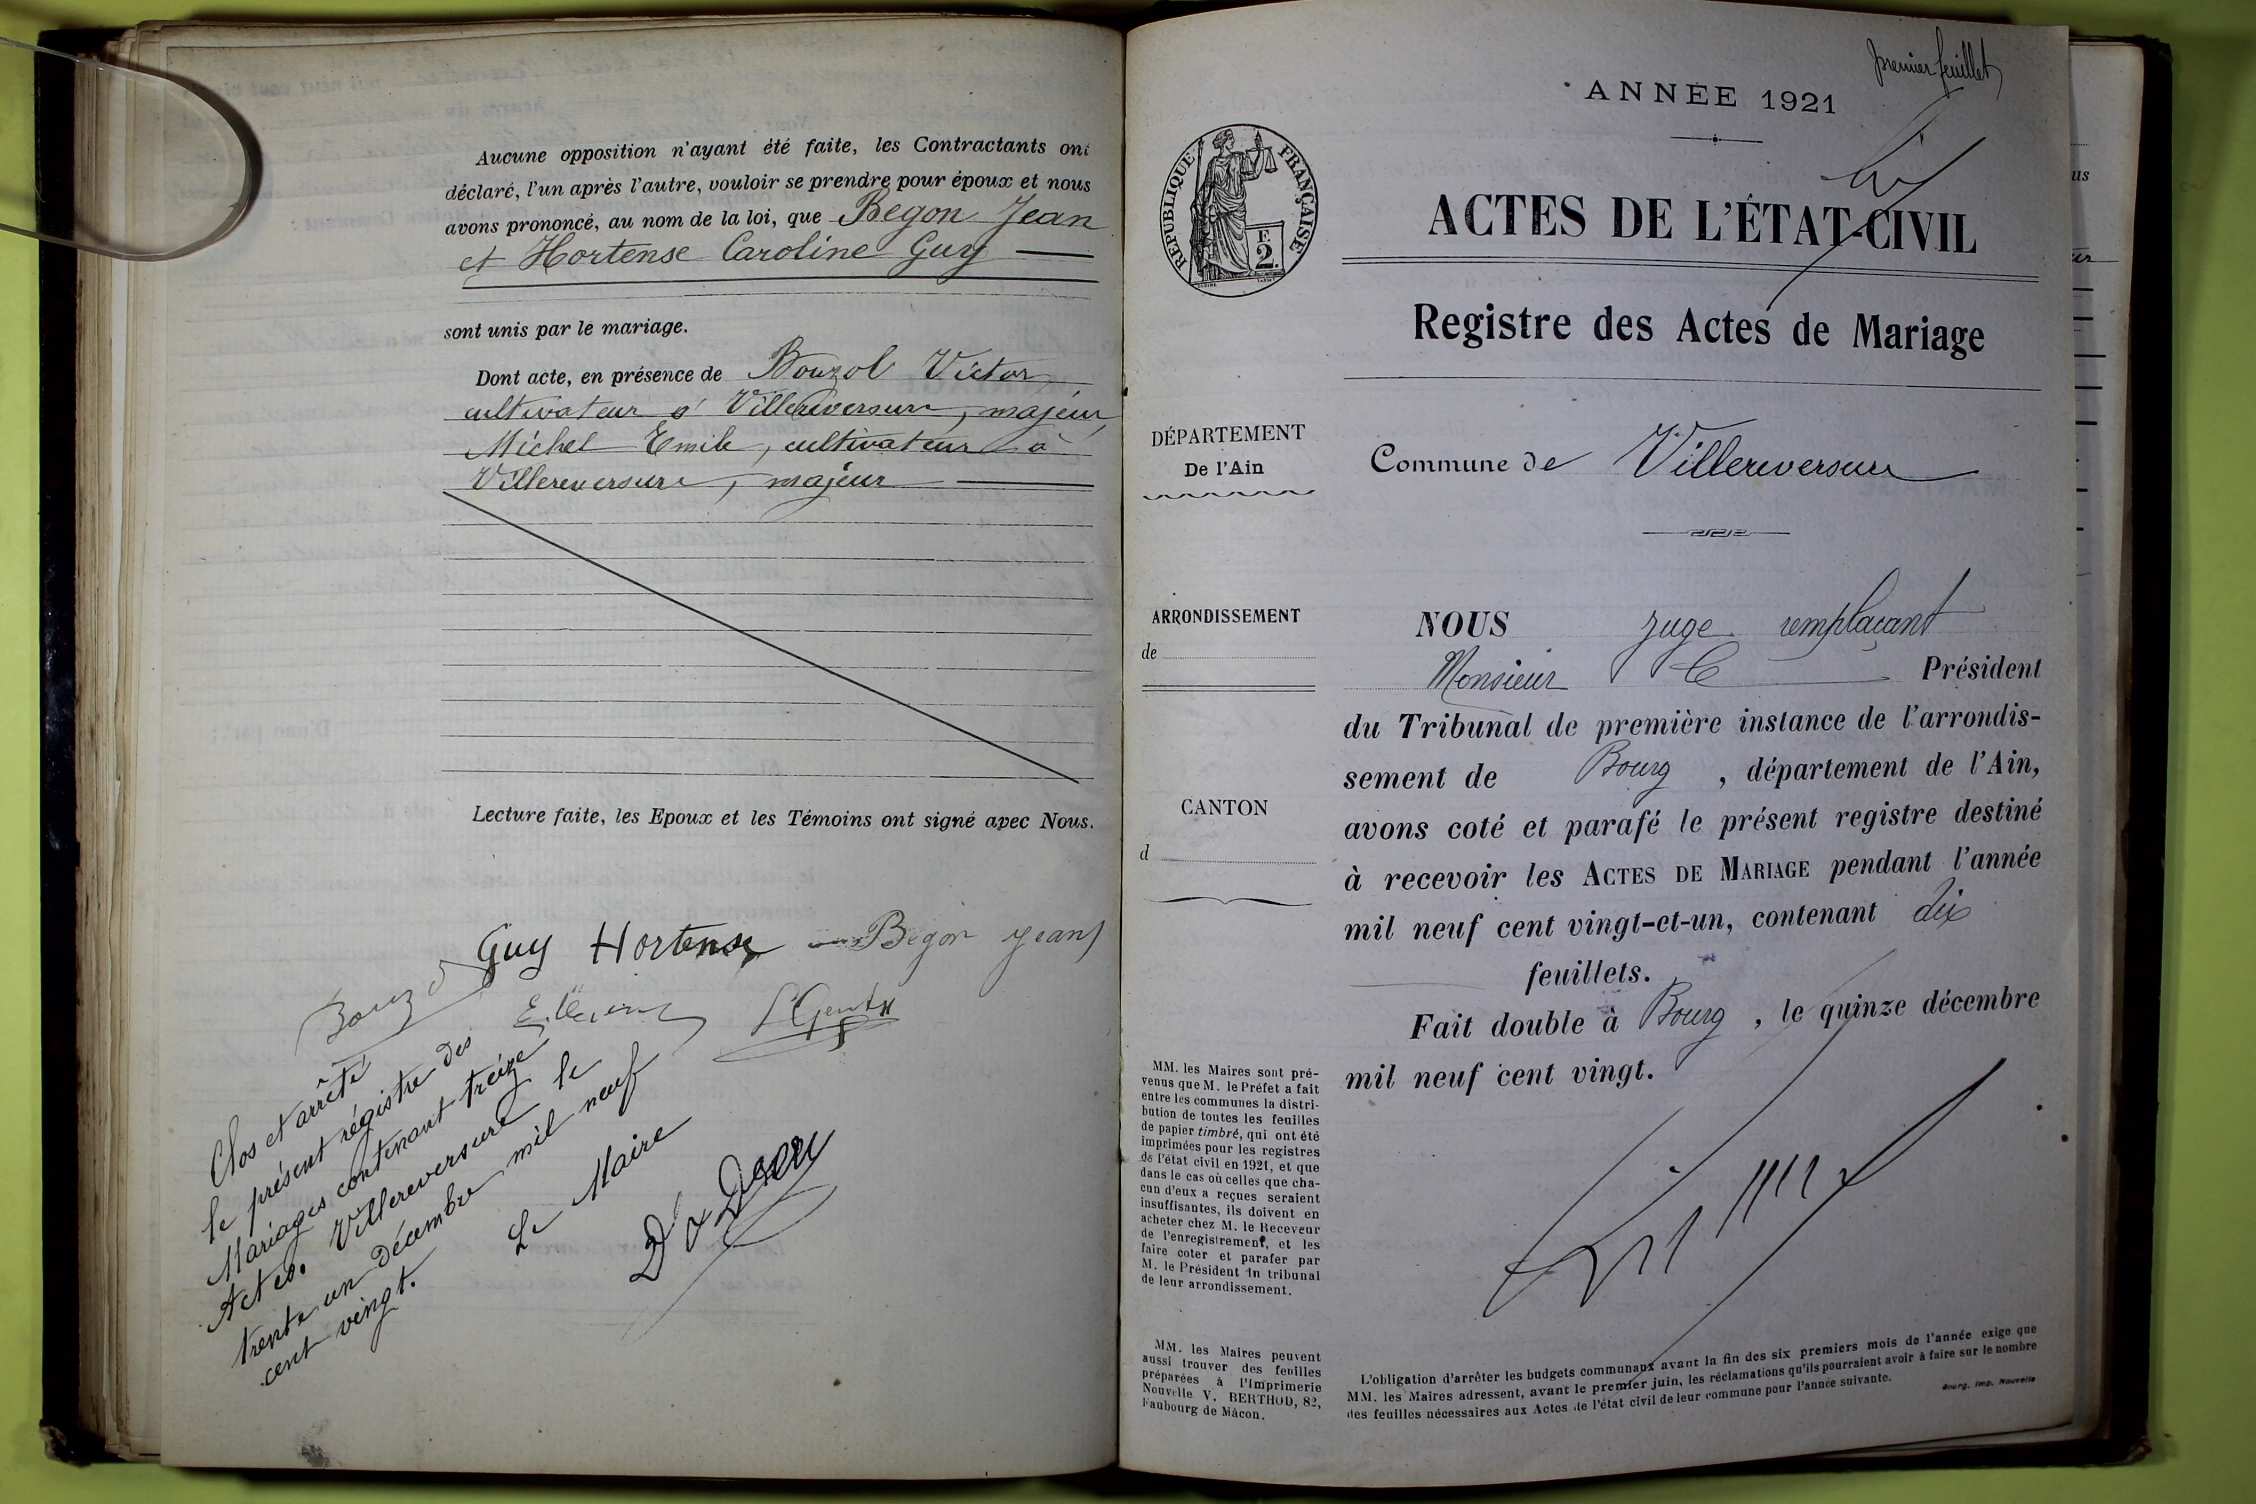 Aucune opposition n'ayant été faite, les Contractants ont
déclaré, l'un après l'autre, vouloir se prendre pour époux et nous
avons prononcé, au nom de la loi, que Begon Jean
et Hortense Caroline Guy
sont unis par le mariage.
Dont acte, en présence de Bouzol Victor,
cultivateur à Villereversure, majeur,
Michel Emile, cultivateur à
Villereversure, majeur
Lecture faite, les Epoux et les Témoins ont signé avec Nous.
Guy Hortense Begon Jean
Bouzol
Clos et arrêté
le présent régistre des
Mariages contenant treize
Actes. Villereversure le
trente un Décembre mil neuf
cent vingt.
Le Maire
premier feuillet
ANNÉE 1921
RÉPUBLIQUE FRANÇAISE
F.
2.
ACTES DE L'ÉTAT-CIVIL
Registre des Actes de Mariage
DÉPARTEMENT
De l'Ain
Commune de Villereversure
ARRONDISSEMENT
de
CANTON
d
NOUS juge remplaçant
Monsieur le Président
du Tribunal de première instance de l'arrondis-
sement de Bourg, département de l'Ain,
avons coté et parafé le présent registre destiné
à recevoir les ACTES DE MARIAGE pendant l'année
mil neuf cent vingt-et-un, contenant dix
feuillets.
Fait double à Bourg, le quinze décembre
mil neuf cent vingt.
MM. les Maires sont pré-
venus que M. le Préfet a fait
entre les communes la distri-
bution de toutes les feuilles
de papier timbré, qui ont été
imprimées pour les registres
de l'état civil en 1921, et que
dans le cas où celles que cha-
cun d'eux a reçues seraient
insuffisantes, ils doivent en
acheter chez M. le Receveur
de l'enregistrement, et les
faire coter et parafer par
M. le Président du tribunal
de leur arrondissement.
MM. les Maires peuvent
aussi trouver des feuilles
préparées à l'Imprimerie
Nouvelle V. BERTHOD, 82,
Faubourg de Mâcon.
L'obligation d'arrêter les budgets communaux avant la fin des six premiers mois de l'année exige que
MM. les Maires adressent, avant le premier juin, les réclamations qu'ils pourraient avoir à faire sur le nombre
des feuilles nécessaires aux Actes de l'état civil de leur commune pour l'année suivante.
Bourg. Imp. Nouvelle